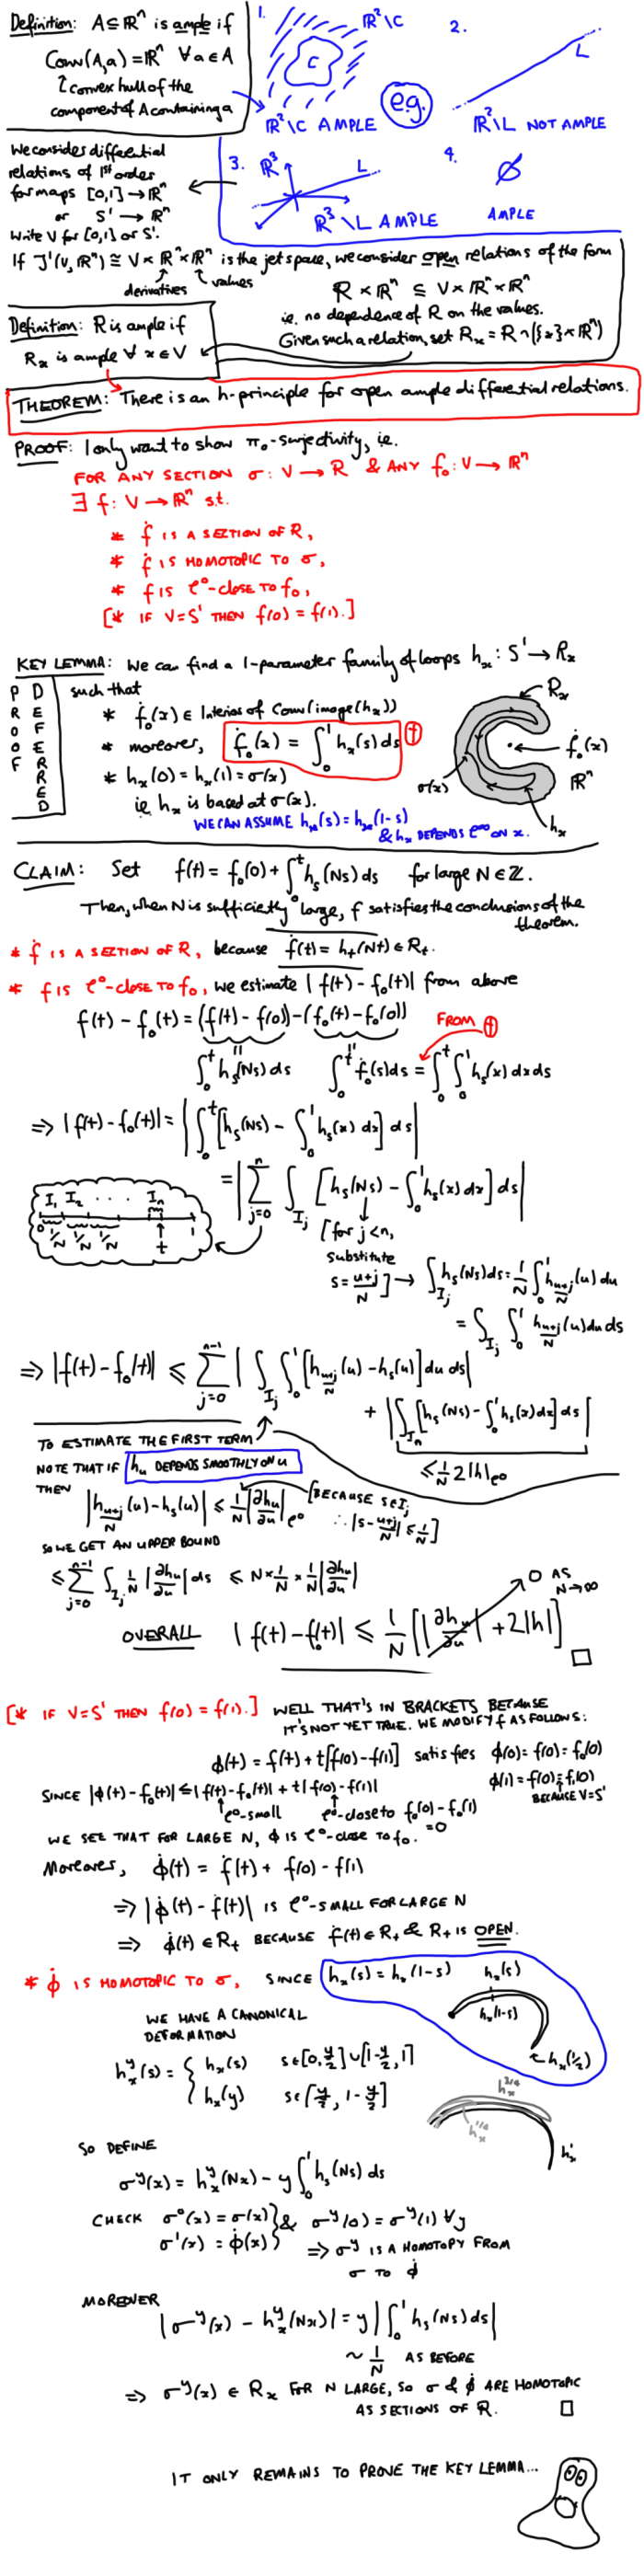 Definition: A⊆ℝⁿ is ample if
Conv(A,a)=ℝⁿ ∀a∈A
↑convex hull of the
component of A containing a
1.
ℝ²\C
C
ℝ²\C AMPLE
e.g.
2.
L
ℝ²\L NOT AMPLE
3.
ℝ³
L
ℝ³\L AMPLE
4.
∅
AMPLE
We consider differential
relations of 1st order
for maps [0,1]→ℝⁿ
or S¹→ℝⁿ
Write V for [0,1] or S¹.
If J¹(V,ℝⁿ)≅V×ℝⁿ×ℝⁿ is the jet space, we consider open relations of the form
derivatives
values
R×ℝⁿ ⊆ V×ℝⁿ×ℝⁿ
i.e. no dependence of R on the values.
Given such a relation, set Rₓ=R∩({x}×ℝⁿ)
Definition: R is ample if
Rₓ is ample ∀ x∈V
THEOREM: There is an h-principle for open ample differential relations.
PROOF: I only want to show π₀-surjectivity, i.e.
FOR ANY SECTION σ: V→R & ANY f₀: V→ℝⁿ
∃ f: V→ℝⁿ s.t.
* ḟ IS A SECTION OF R,
* ḟ IS HOMOTOPIC TO σ,
* f IS C⁰-CLOSE TO f₀,
[* IF V=S¹ THEN f(0)=f(1).]
KEY LEMMA: We can find a 1-parameter family of loops hₓ: S¹→Rₓ
PROOF
DEFERRED
such that
* ḟ₀(x)∈Interior of Conv(image(hₓ))
* moreover, ḟ₀(x)=∫₀¹hₓ(s)ds †
* hₓ(0)=hₓ(1)=σ(x)
i.e. hₓ is based at σ(x).
WE CAN ASSUME hₓ(s)=hₓ(1-s)
& hₓ DEPENDS C^∞ ON x.
Rₓ
ḟ₀(x)
ℝⁿ
σ(x)
hₓ
CLAIM: Set f(t)=f₀(0)+∫₀ᵗhₛ(Ns)ds for large N∈ℤ.
Then, when N is sufficiently large, f satisfies the conclusions of the
theorem.
* ḟ IS A SECTION OF R, because ḟ(t)=hₜ(Nt)∈Rₜ.
* f IS C⁰-CLOSE TO f₀, we estimate |f(t)-f₀(t)| from above
f(t)-f₀(t)=(f(t)-f(0))-(f₀(t)-f₀(0))
FROM †
∫₀ᵗhₛ(Ns)ds ∫₀ᵗḟ₀(s)ds=∫₀ᵗ∫₀¹hₛ(x)dxds
⇒|f(t)-f₀(t)|=|∫₀ᵗ[hₛ(Ns)-∫₀¹hₛ(x)dx]ds|
I₁ I₂ . . . Iₙ
0 1/N 1/N 1/N t 1
=|∑_{j=0}^{n}∫_{I_j}[hₛ(Ns)-∫₀¹hₛ(x)dx]ds|
[for j<n,
substitute
s=(u+j)/N]→∫_{I_j}hₛ(Ns)ds=1/N∫₀¹h_{(u+j)/N}(u)du
=∫_{I_j}∫₀¹h_{(u+j)/N}(u)duds
⇒|f(t)-f₀(t)|≤∑_{j=0}^{n-1}|∫_{I_j}∫₀¹[h_{(u+j)/N}(u)-hₛ(u)]du ds|
+|∫_{Iₙ}[hₛ(Ns)-∫₀¹hₛ(x)dx]ds|
≤1/N 2|h|_{C⁰}
TO ESTIMATE THE FIRST TERM
NOTE THAT IF hᵤ DEPENDS SMOOTHLY ON u
THEN
|h_{(u+j)/N}(u)-hₛ(u)|≤1/N|∂hᵤ/∂u|_{C⁰}
[BECAUSE s∈I_j
∴|s-(u+j)/N|≤1/N]
SO WE GET AN UPPER BOUND
≤∑_{j=0}^{n-1}∫_{I_j}1/N|∂hᵤ/∂u|ds ≤N×1/N×1/N|∂hᵤ/∂u|
0 AS
N→∞
OVERALL |f(t)-f₀(t)|≤1/N[|∂hᵤ/∂u|+2|h|]
[* IF V=S¹ THEN f(0)=f(1).] WELL THAT'S IN BRACKETS BECAUSE
IT'S NOT YET TRUE. WE MODIFY f AS FOLLOWS:
ϕ(t)=f(t)+t[f(0)-f(1)] satisfies ϕ(0)=f(0)=f₀(0)
ϕ(1)=f(0)=f₀(0)
BECAUSE V=S¹
SINCE |ϕ(t)-f₀(t)|≤|f(t)-f₀(t)|+t|f(0)-f(1)|
C⁰-small
C⁰-close to f₀(0)-f₀(1)
=0
WE SEE THAT FOR LARGE N, ϕ IS C⁰-CLOSE TO f₀.
Moreover, ϕ̇(t)=ḟ(t)+f(0)-f(1)
⇒|ϕ̇(t)-ḟ(t)| IS C⁰-SMALL FOR LARGE N
⇒ϕ̇(t)∈Rₜ BECAUSE ḟ(t)∈Rₜ & Rₜ IS OPEN.
* ϕ̇ IS HOMOTOPIC TO σ, SINCE hₓ(s)=hₓ(1-s)
hₓ(s)
hₓ(1-s)
hₓ(1/2)
WE HAVE A CANONICAL
DEFORMATION
hₓʸ(s)={hₓ(s) s∈[0,y/2]∪[1-y/2,1]
hₓ(y) s∈[y/2,1-y/2]
hₓ^{3/4}
hₓ^{1/4}
hₓ¹
SO DEFINE
σʸ(x)=hₓʸ(Nx)-y∫₀¹hₛ(Ns)ds
CHECK σ⁰(x)=σ(x)}& σʸ(0)=σʸ(1) ∀y
σ¹(x)=ϕ̇(x)} ⇒σʸ IS A HOMOTOPY FROM
σ TO ϕ̇
MOREOVER
|σʸ(x)-hₓʸ(Nx)|=y|∫₀¹hₛ(Ns)ds|
~1/N AS BEFORE
⇒σʸ(x)∈Rₓ FOR N LARGE, SO σ & ϕ̇ ARE HOMOTOPIC
AS SECTIONS OF R.
IT ONLY REMAINS TO PROVE THE KEY LEMMA...